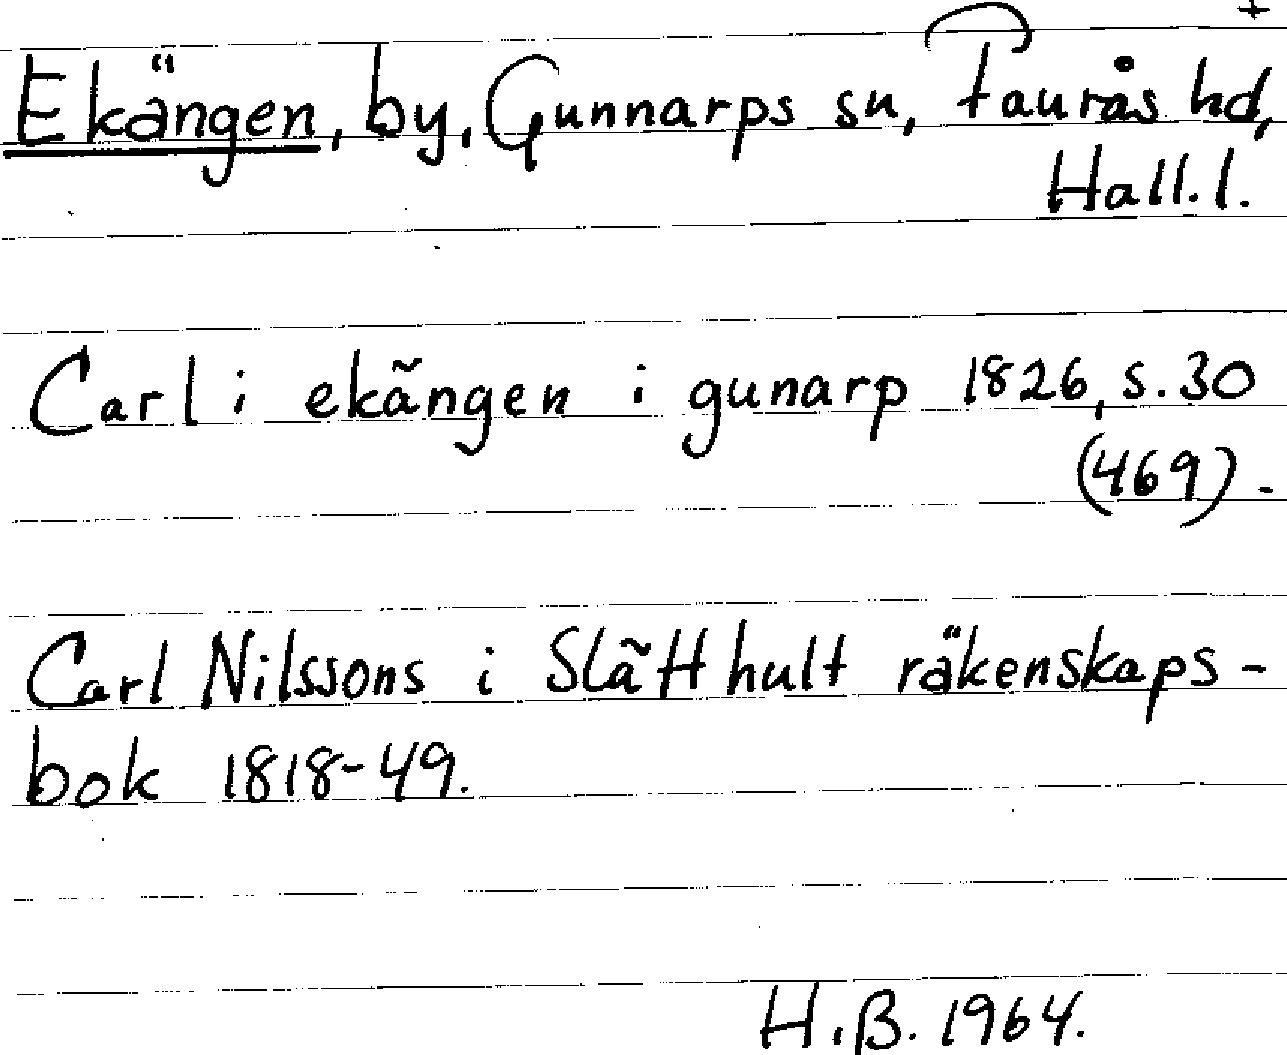 +
Ekängen, by, Gunnarps sn, Faurås hd,
Hall. l.
Carl i ekãngen i gunarp 1826, s. 30
(469).
Carl Nilssons i Slãtthult räkenskaps-
bok 1818-49.
H.B. 1964.